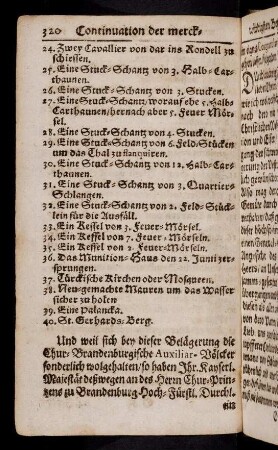 320 Continuation der merck-
24. Zwey Cavallier von dar ins Rondell zu
schiessen.
25. Eine Stuck-Schantz von 3. Halb-Car-
thaunen.
26. Eine Stuck-Schantz von 3. Stucken.
27. Eine Stuck-Schantz/worauf ehe 5. Halb-
Carthaunen/hernach aber 5. Feuer Mör-
sel.
28. Eine Stuck-Schantz von 4. Stucken.
29. Eine Stuck-Schantz von 6. Feld-Stücken
um das Thal zu flanquiren.
30. Eine Stuck-Schantz von 12. Halb-Car-
thaunen.
31. Eine Stuck-Schantz von 3. Quartier-
Schlangen.
32. Eine Stuck-Schantz von 2. Feld-Stück-
lein für die Ausfäll.
33. Ein Kessel von 3. Feuer-Mörsel.
34. Ein Kessel von 7. Feuer-Mörseln.
35. Ein Kessel von 2. Feuer-Mörseln.
36. Das Munition-Haus den 12. Junii zer-
sprungen.
37. Türckische Kirchen oder Mosqueen.
38. Neu-gemachte Mauren um das Wasser
sicher zu holen
39. Eine Palancka.
40. St. Gerhards-Berg.
Und weil sich bey dieser Belägerung die
Chur-Brandenburgische Auxiliar-Völcker
sonderlich wolgehalten/so haben Ihr. Kayserl.
Majestät deßwegen an des Herrn Chur-Prin-
tzens zu Brandenburg Hoch-Fürstl. Durchl.